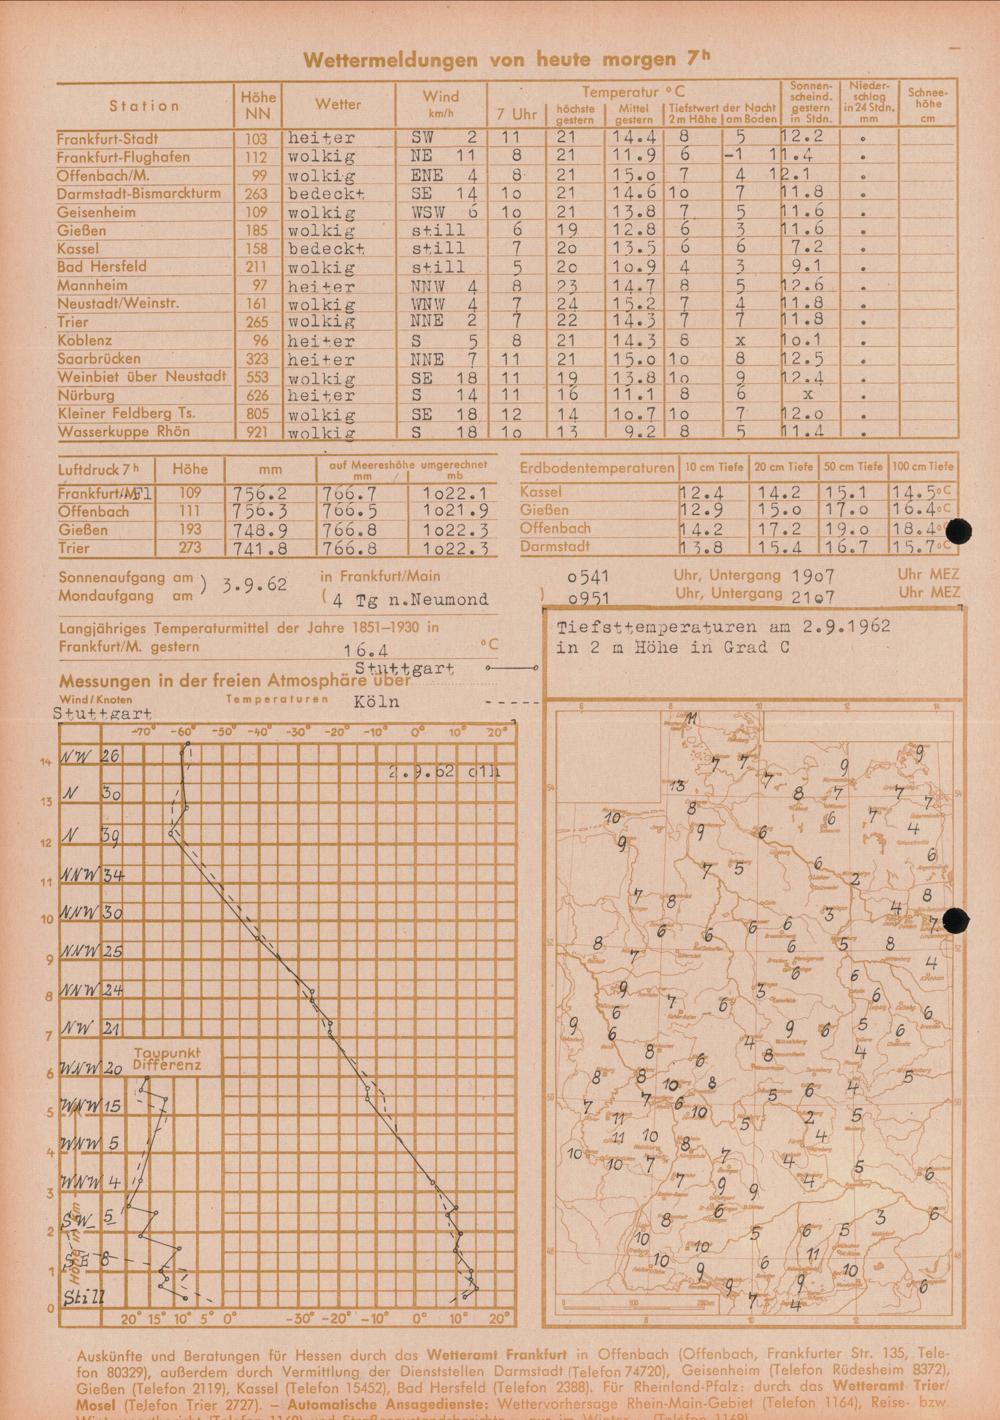 Wettermeldungen von heute morgen 7h
Station Höhe NN Wetter Wind km/h Temperatur °C Sonnenscheind. gestern in Stdn. Niederschlag in 24 Stdn. mm Schneehöhe cm
7 Uhr höchste gestern Mittel gestern Tiefstwert der Nacht 2 m Höhe am Boden
Frankfurt-Stadt 103 heiter SW 2 11 21 14.4 8 5 12.2 .
Frankfurt-Flughafen 112 wolkig NE 11 8 21 11.9 6 -1 11.4 .
Offenbach/M. 99 wolkig ENE 4 8 21 15.0 7 4 12.1 .
Darmstadt-Bismarckturm 263 bedeckt SE 14 10 21 14.6 10 7 11.8 .
Geisenheim 109 wolkig WSW 6 10 21 13.8 7 5 11.6 .
Gießen 185 wolkig still 6 19 12.8 6 3 11.6 .
Kassel 158 bedeckt still 7 20 13.5 6 6 7.2 .
Bad Hersfeld 211 wolkig still 5 20 10.9 4 3 9.1 .
Mannheim 97 heiter NNW 4 8 23 14.7 8 5 12.6 .
Neustadt/Weinstr. 161 wolkig WNW 4 7 24 15.2 7 4 11.8 .
Trier 265 wolkig NNE 2 7 22 14.3 7 7 11.8 .
Koblenz 96 heiter S 5 8 21 14.3 8 x 10.1 .
Saarbrücken 323 heiter NNE 7 11 21 15.0 10 8 12.5 .
Weinbiet über Neustadt 553 wolkig SE 18 11 19 13.8 10 9 12.4 .
Nürburg 626 heiter S 14 11 16 11.1 8 6 x .
Kleiner Feldberg Ts. 805 wolkig SE 18 12 14 10.7 10 7 12.0 .
Wasserkuppe Rhön 921 wolkig S 18 10 13 9.2 8 5 11.4 .
Luftdruck 7h Höhe mm auf Meereshöhe umgerechnet mm mb
Frankfurt/M Fl 109 756.2 766.7 1022.1
Offenbach 111 756.3 766.5 1021.9
Gießen 193 748.9 766.8 1022.3
Trier 273 741.8 766.8 1022.3
Erdbodentemperaturen 10 cm Tiefe 20 cm Tiefe 50 cm Tiefe 100 cm Tiefe
Kassel 12.4 14.2 15.1 14.5°C
Gießen 12.9 15.0 17.0 16.4°C
Offenbach 14.2 17.2 19.0 18.4°C
Darmstadt 13.8 15.4 16.7 15.7°C
Sonnenaufgang am ) 3.9.62 in Frankfurt/Main 0541 Uhr, Untergang 1907 Uhr MEZ
Mondaufgang am (4 Tg n.Neumond ) 0951 Uhr, Untergang 2107 Uhr MEZ
Langjähriges Temperaturmittel der Jahre 1851–1930 in
Frankfurt/M. gestern 16.4 °C
Stuttgart
Messungen in der freien Atmosphäre über
Wind/Knoten Temperaturen Köln
Stuttgart
-70° -60° -50° -40° -30° -20° -10° 0° 10° 20°
2.9.62 01h
14 NW 26
13 N 30
12 N 39
11 NNW 34
10 NNW 30
9 NNW 25
8 NNW 24
7 NW 21
Taupunkt
Differenz
6 WNW 20
5 WNW 15
4 WNW 5
3 WNW 4
2 SW 5
1 SE 8
0 Still
20° 15° 10° 5° 0° -30° -20° -10° 0° 10° 20°
Tiefsttemperaturen am 2.9.1962
in 2 m Höhe in Grad C
6 8 10 12 14
11
9
7 7 9
13 7 8 7 7 7
10 8 6 7 4
9 9 6 6
7 5 6 2
7 8 3 4 8
6 6 6 6 7
8 7 6 5 8 4
6 6
9 7 3 6
6 7
9 6 9 6 5 6
8 6 4 8 4
8 8 10 8 5 6 4 5
7 7 6 10 5 2 5
11
11 10 8 4
10 10 7 7 4 5
7 9 9 4 6
8 6 5 6 5 3 6
10 10 11
10 9 6 9 10 6
7 4
Auskünfte und Beratungen für Hessen durch das Wetteramt Frankfurt in Offenbach (Offenbach, Frankfurter Str. 135, Tele-
fon 80329), außerdem durch Vermittlung der Dienststellen Darmstadt (Telefon 74720), Geisenheim (Telefon Rüdesheim 8372),
Gießen (Telefon 2119), Kassel (Telefon 15452), Bad Hersfeld (Telefon 2388). Für Rheinland-Pfalz: durch das Wetteramt Trier/
Mosel (Telefon Trier 2727). – Automatische Ansagedienste: Wettervorhersage Rhein-Main-Gebiet (Telefon 1164), Reise- bzw.